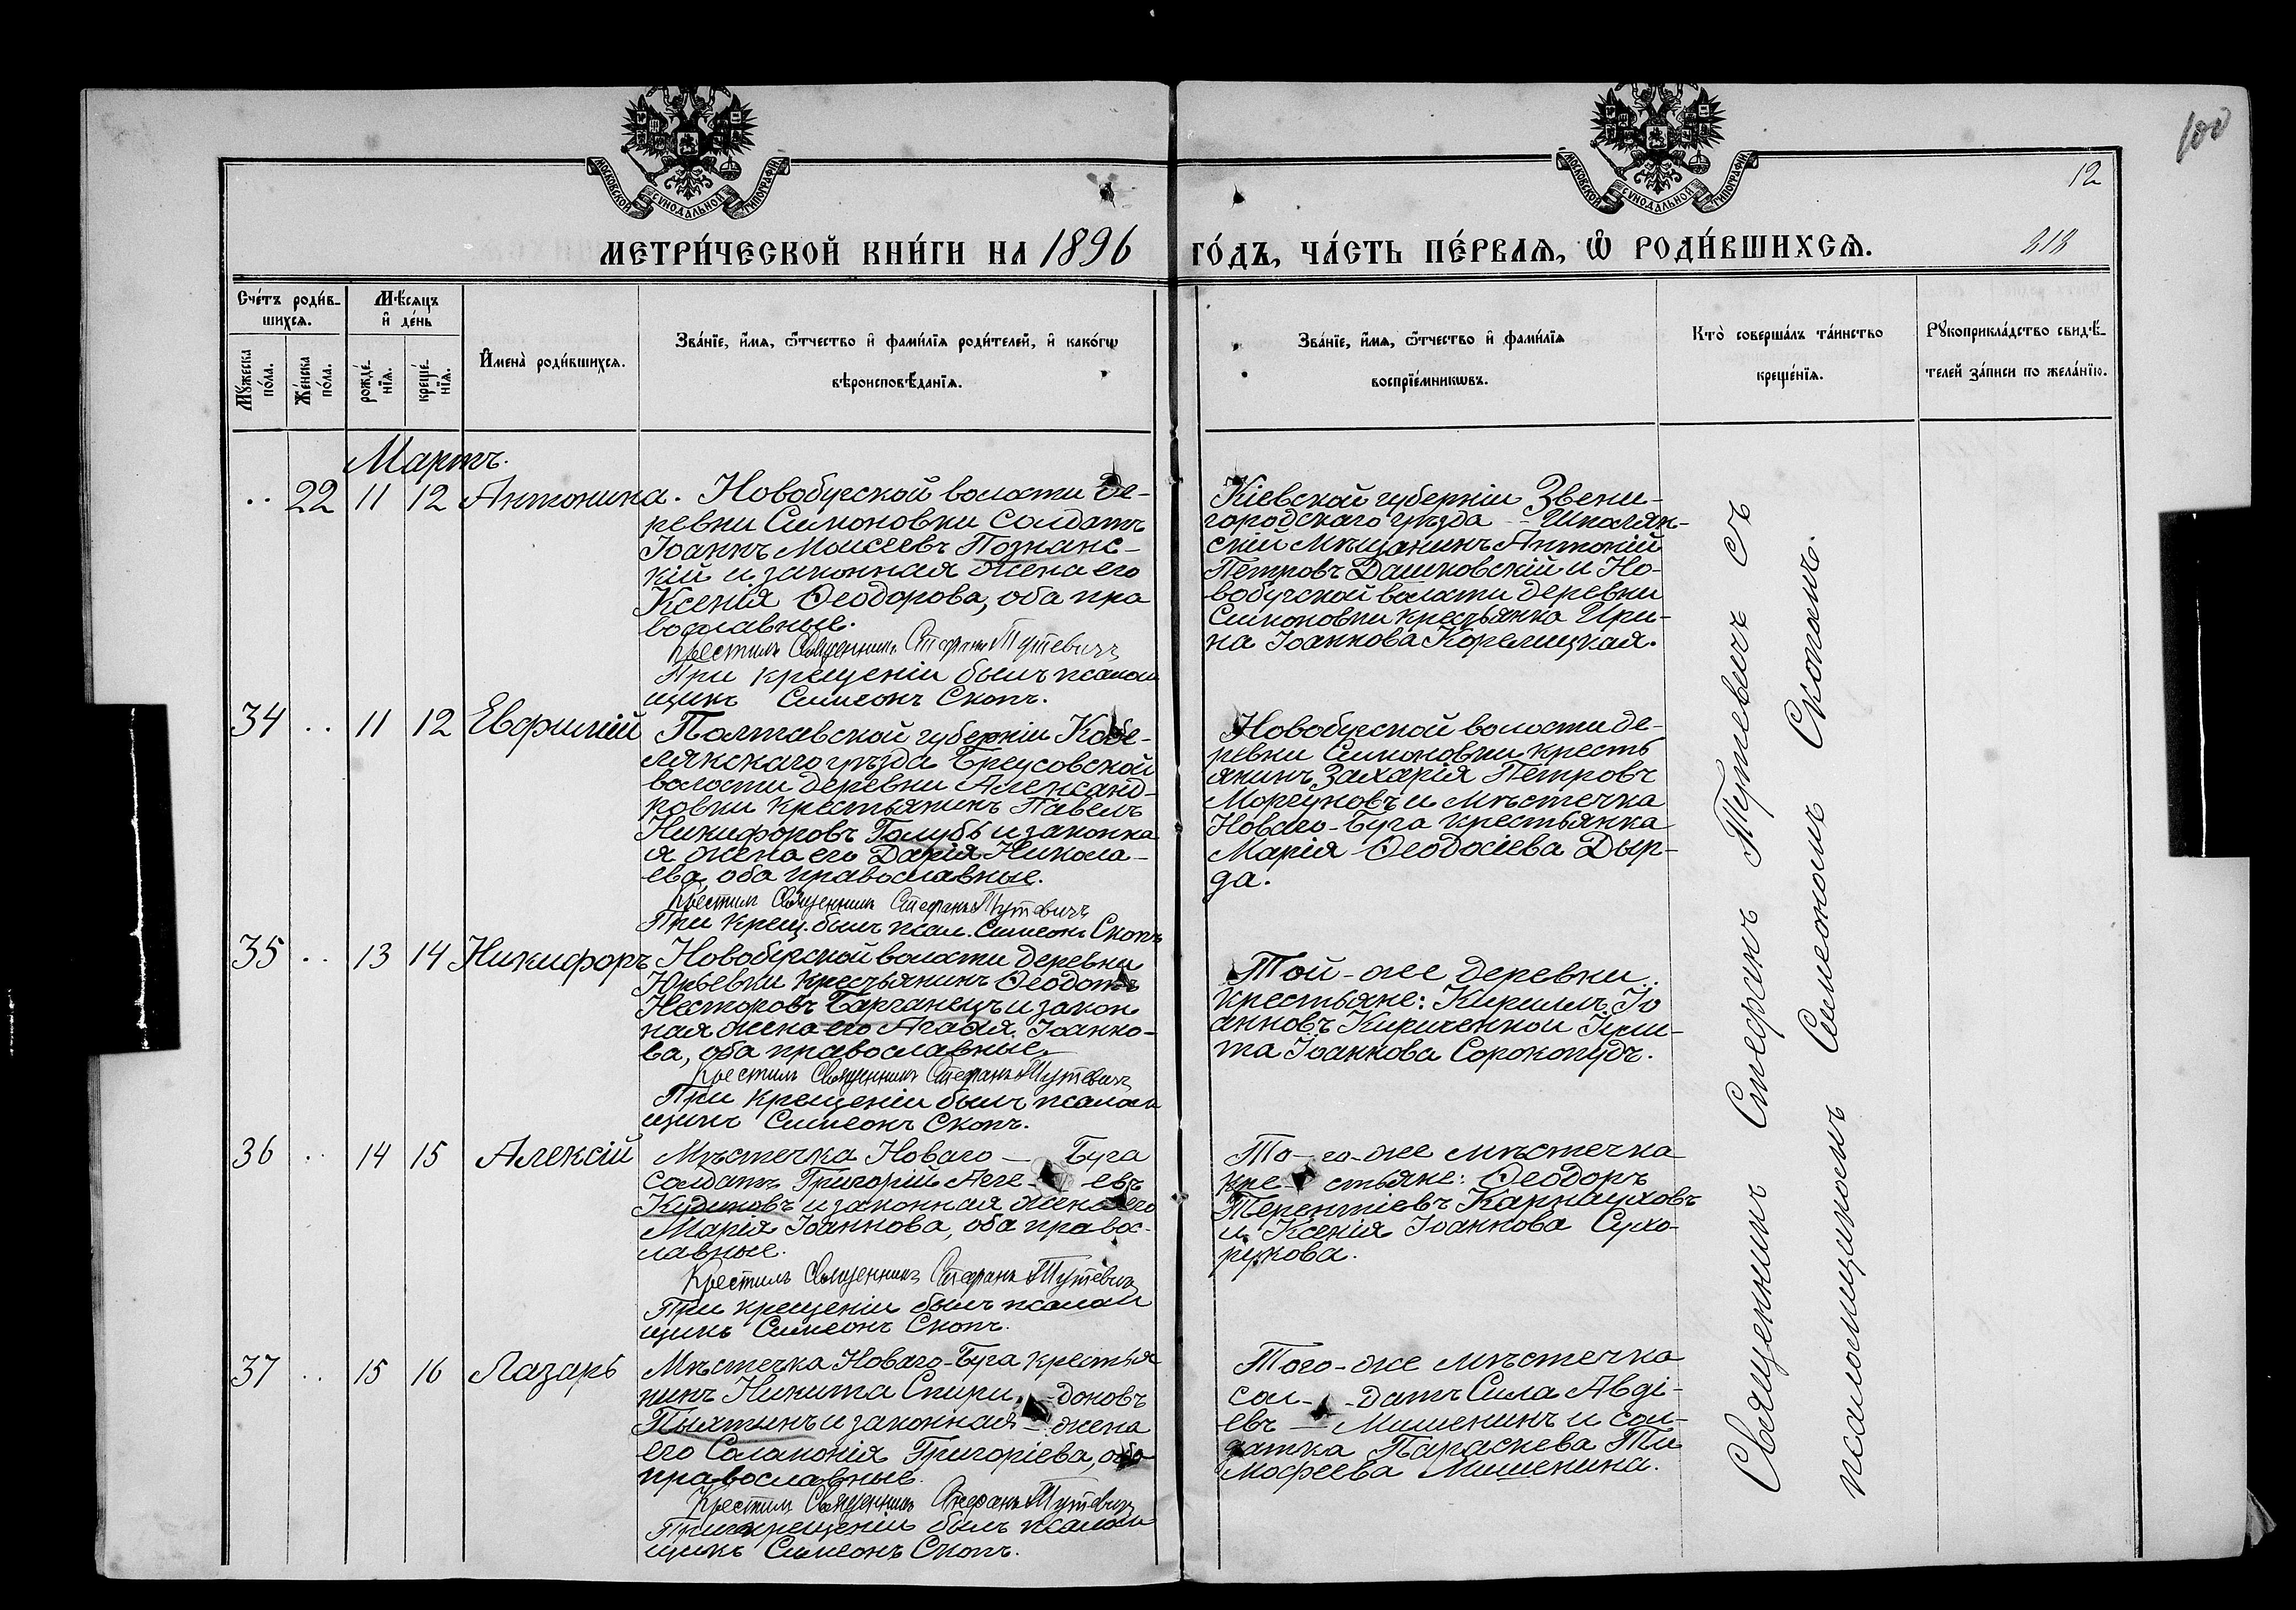 100
МОСКОВСКОЙ СУНОДАЛЬНОЙ ТИПОГРАФІИ
МОСКОВСКОЙ СУНОДАЛЬНОЙ ТИПОГРАФІИ
12
МЕТРИ́ЧЕСКОЙ КНИ́ГИ НА 1896 ГО́ДЪ, ЧА́СТЬ ПЕ́РВАѦ, Ѡ҆ РОДИ́ВШИХСѦ.
213
Сче́тъ роди́в-
шихсѧ.
Мꙋ́жеска по́ла.
Же́нска по́ла.
Мѣ́сяцъ
и҆ де́нь
рожде́-
нїѧ.
креще́-
нїѧ.
И҆мена̀ роди́вшихсѧ.
Зва́нїе, и҆́мѧ, ѻ҆́тчество и҆ фами́лїѧ роди́телей, и҆ како́гѡ
вѣроисповѣ́данїѧ.
Зва́нїе, и҆́мѧ, ѻ҆́тчество и҆ фами́лїѧ
воспрїе́мникѡвъ.
Кто̀ соверша́лъ та́инство
креще́нїѧ.
Рꙋкоприкла́дство свидѣ́-
телей за́писи по жела́нїю.
Мартъ.
.. 22 11 12 Антонина.
Новобугской волости де-
ревни Симоновки солдатъ
Іоаннъ Моисеевъ Познанс-
кій и законная жена его
Ксенія Ѳеодорова, оба пра
вославные.
Крестилъ Священникъ Стефанъ Тутевичъ
При крещеніи былъ псалом
щикъ Симеонъ Скопъ.
Кіевской губерніи Звени-
городскаго уѣзда - Шполян-
скій Мѣщанинъ Антоній
Петровъ Дашковскій и Но-
вобугской волости деревни
Симоновки крестьянка Ири-
на Іоаннова Корелицкая.
34 .. 11 12 Евфимій
Полтавской губерніи Кобе-
лякскаго уѣзда Бреусовской
волости деревни Александ-
ровки крестьянинъ Павелъ
Никифоровъ Голубъ и законна
я жена его Дарія Никола-
ева, оба православные.
Крестилъ Священникъ Стефанъ Тутевичъ
При крещ. былъ псал. Симеонъ Скопъ
Новобугской волости де-
ревни Симоновки кресть
янинъ Захарія Петровъ
Моргуновъ и мѣстечка
Новаго-Буга крестьянка
Марія Ѳеодосіева Дыр-
да.
35 .. 13 14 Никифоръ
Новобугской волости деревни
Юрьевки крестьянинъ Ѳеодотъ
Несторовъ Барганецъ и закон
ная жена его Агаѳія Іоанно-
ва, оба православные.
Крестилъ Священникъ Стефанъ Тутевичъ
При крещеніи былъ псалом
щикъ Симеонъ Скопъ.
Той-же деревни
крестьяне: Кириллъ Іо
анновъ Кириченко и
та Іоаннова Сорокопудъ.
36 .. 14 15 Алексій
Мѣстечка Новаго - Буга
солдатъ Григорій Аге- евъ
Кудиновъ и законная жена его
Марія Іоаннова, оба правос-
лавные.
Крестилъ Священникъ Стефанъ Тутевичъ
При крещеніи былъ псалом
щикъ Симеонъ Скопъ.
То-го-же мѣстечка
кре- стьяне: Ѳеодоръ
Терентіевъ Карнауховъ
и Ксенія Іоаннова Сухо-
рукова.
37 .. 15 16 Лазарь
Мѣстечка Новаго-Буга крестья
нинъ Никита Спири- доновъ
и законная - жена
его Соломонія Григоріева, оба
православные.
Крестилъ Священникъ Стефанъ Тутевичъ
При крещеніи былъ псалом
щикъ Симеонъ Скопъ.
Того-же мѣстечка
сол- - датъ Сила Авді-
евъ - Мишенинъ и сол-
датка Параскева Ти
мофеева Мишенина.
Священникъ Стефанъ Тутевичъ съ
псаломщикомъ Симеономъ Скопомъ.